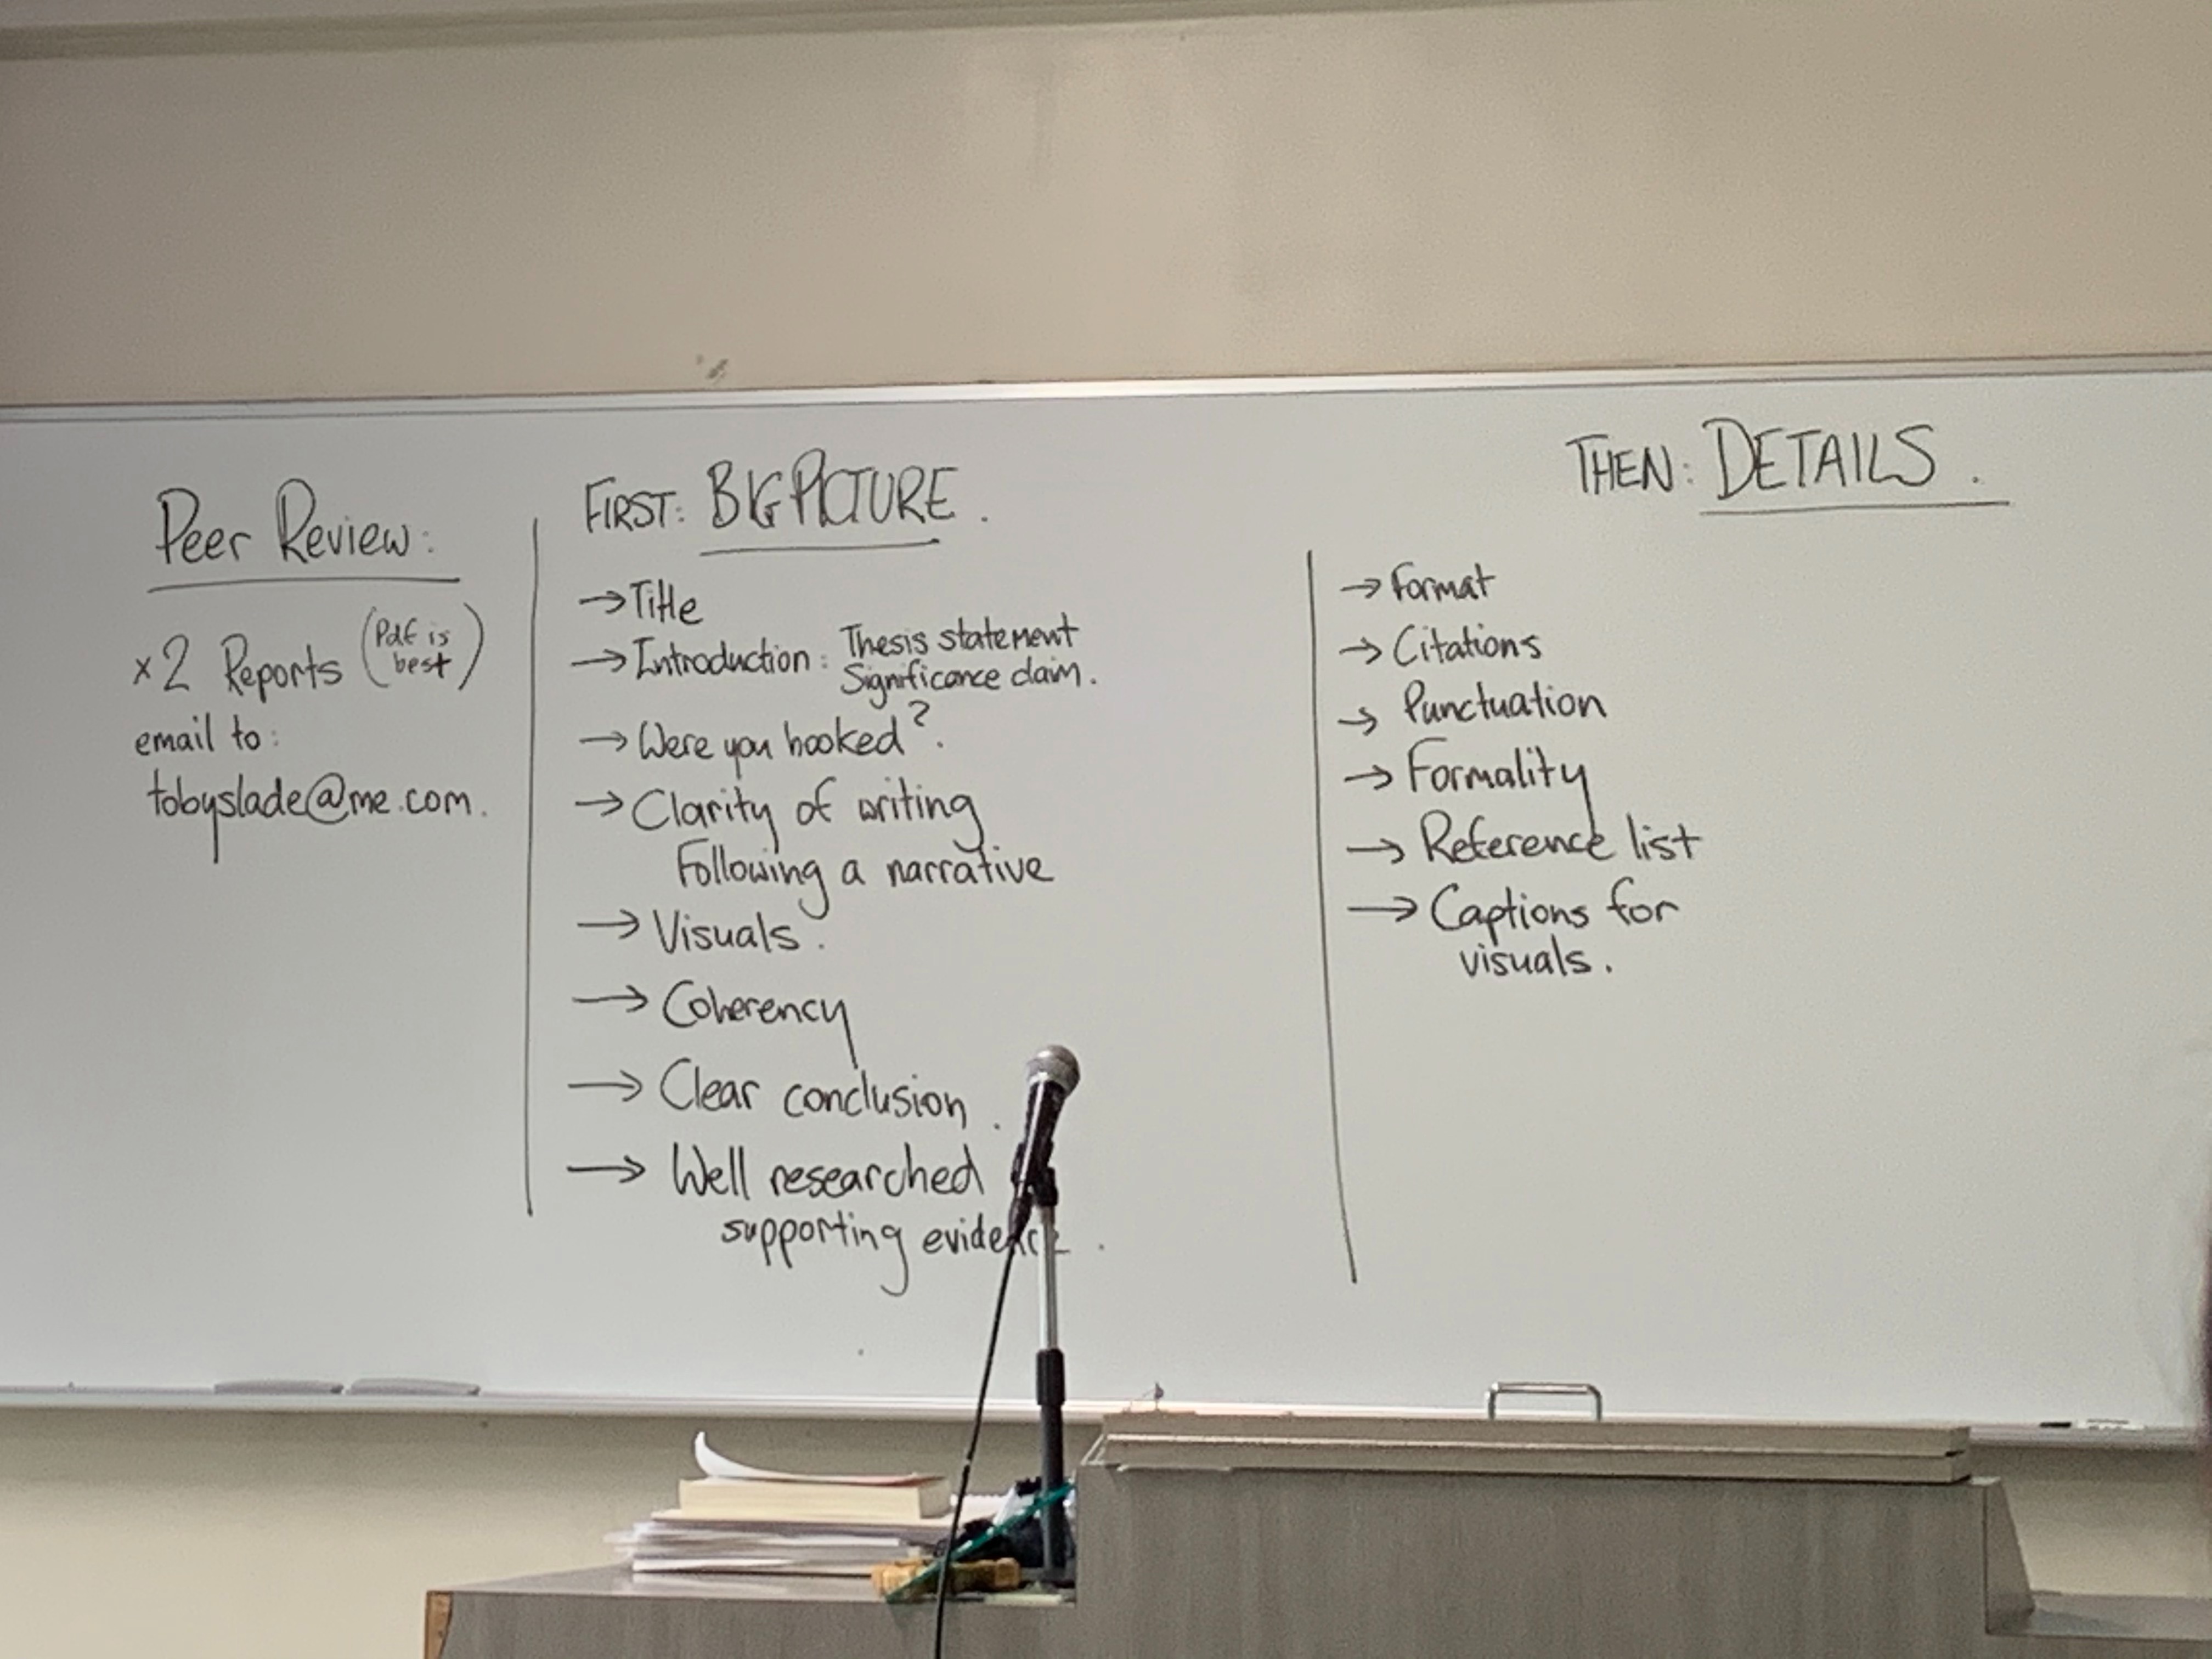 Peer Review:
x2 Reports (Pdf is best)
email to:
tobyslade@me.com.
FIRST: BIG PICTURE.
→ Title
→ Introduction: Thesis statement
Significance claim.
→ Were you hooked?
→ Clarity of writing
Following a narrative
→ Visuals.
→ Coherency
→ Clear conclusion.
→ Well researched
supporting evidence.
THEN: DETAILS.
→ Format
→ Citations
→ Punctuation
→ Formality
→ Reference list
→ Captions for
visuals.